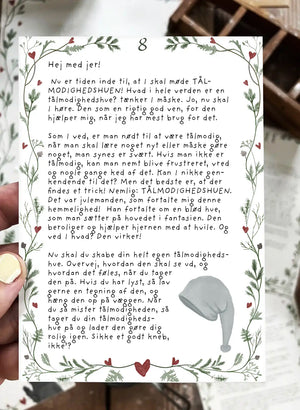 8
Hej med jer!
Nu er tiden inde til, at I skal møde TÅL-
MODIGHEDSHUEN! Hvad i hele verden er en
tålmodighedshue? tænker I måske. Jo, nu skal
I høre. Den som en rigtig god ven, for den
hjælper mig, når jeg har mest brug for det.
Som I ved, er man nødt til at være tålmodig,
når man skal lære noget nyt eller måske gøre
noget, man synes er svært. Hvis man ikke er
tålmodig, kan man nemt blive frustreret, vred
og nogle gange ked af det. Kan I nikke gen-
kendende til det? Men det bedste er, at der
findes et trick! Nemlig: TÅLMODIGHEDSHUEN.
Det var julemanden, som fortalte mig denne
hemmelighed! Han fortalte om en blød hue,
som man sætter på hovedet i fantasien. Den
beroliger og hjælper hjernen med at hvile. Og
ved I hvad? Den virker!
Nu skal du skabe din helt egen tålmodigheds-
hue. Overvej, hvordan den skal se ud, og
hvordan det føles, når du tager
den på. Hvis du har lyst, så lav
gerne en tegning af den, og
hæng den op på væggen. Når
du så mister tålmodigheden, så
tager du din tålmodigheds-
hue på og lader den gøre dig
rolig igen. Sikke et godt kneb,
ikke!?